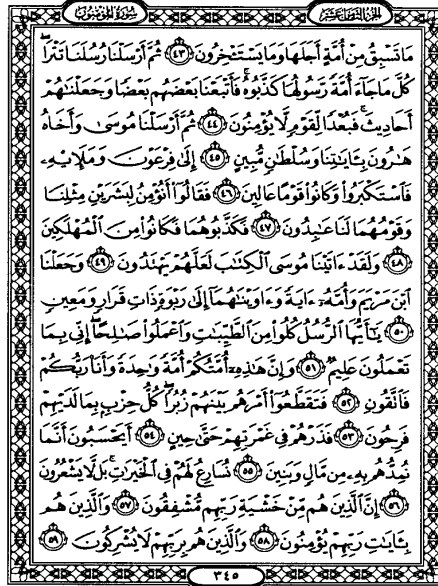 سورة المؤمنون
الجزء الثامن عشر
مَا تَسْبِقُ مِنْ أُمَّةٍ أَجَلَهَا وَمَا يَسْتَـْٔخِرُونَ ٤٣ ثُمَّ أَرْسَلْنَا رُسُلَنَا تَتْرَا ۖ
كُلَّ مَا جَآءَ أُمَّةً رَّسُولُهَا كَذَّبُوهُ ۚ فَأَتْبَعْنَا بَعْضَهُم بَعْضًا وَجَعَلْنَٰهُمْ
أَحَادِيثَ ۚ فَبُعْدًا لِّقَوْمٍ لَّا يُؤْمِنُونَ ٤٤ ثُمَّ أَرْسَلْنَا مُوسَىٰ وَأَخَاهُ
هَٰرُونَ بِـَٔايَٰتِنَا وَسُلْطَٰنٍ مُّبِينٍ ٤٥ إِلَىٰ فِرْعَوْنَ وَمَلَإِي۟هِۦ
فَٱسْتَكْبَرُوا۟ وَكَانُوا۟ قَوْمًا عَالِينَ ٤٦ فَقَالُوٓا۟ أَنُؤْمِنُ لِبَشَرَيْنِ مِثْلِنَا
وَقَوْمُهُمَا لَنَا عَٰبِدُونَ ٤٧ فَكَذَّبُوهُمَا فَكَانُوا۟ مِنَ ٱلْمُهْلَكِينَ
٤٨ وَلَقَدْ ءَاتَيْنَا مُوسَى ٱلْكِتَٰبَ لَعَلَّهُمْ يَهْتَدُونَ ٤٩ وَجَعَلْنَا
ٱبْنَ مَرْيَمَ وَأُمَّهُۥٓ ءَايَةً وَءَاوَيْنَٰهُمَآ إِلَىٰ رَبْوَةٍ ذَاتِ قَرَارٍ وَمَعِينٍ
٥٠ يَٰٓأَيُّهَا ٱلرُّسُلُ كُلُوا۟ مِنَ ٱلطَّيِّبَٰتِ وَٱعْمَلُوا۟ صَٰلِحًا ۖ إِنِّى بِمَا
تَعْمَلُونَ عَلِيمٌ ٥١ وَإِنَّ هَٰذِهِۦٓ أُمَّتُكُمْ أُمَّةً وَٰحِدَةً وَأَنَا۠ رَبُّكُمْ
فَٱتَّقُونِ ٥٢ فَتَقَطَّعُوٓا۟ أَمْرَهُم بَيْنَهُمْ زُبُرًا ۖ كُلُّ حِزْبٍۭ بِمَا لَدَيْهِمْ
فَرِحُونَ ٥٣ فَذَرْهُمْ فِى غَمْرَتِهِمْ حَتَّىٰ حِينٍ ٥٤ أَيَحْسَبُونَ أَنَّمَا
نُمِدُّهُم بِهِۦ مِن مَّالٍ وَبَنِينَ ٥٥ نُسَارِعُ لَهُمْ فِى ٱلْخَيْرَٰتِ ۚ بَل لَّا يَشْعُرُونَ
٥٦ إِنَّ ٱلَّذِينَ هُم مِّنْ خَشْيَةِ رَبِّهِم مُّشْفِقُونَ ٥٧ وَٱلَّذِينَ هُم
بِـَٔايَٰتِ رَبِّهِمْ يُؤْمِنُونَ ٥٨ وَٱلَّذِينَ هُم بِرَبِّهِمْ لَا يُشْرِكُونَ ٥٩
٣٤٥